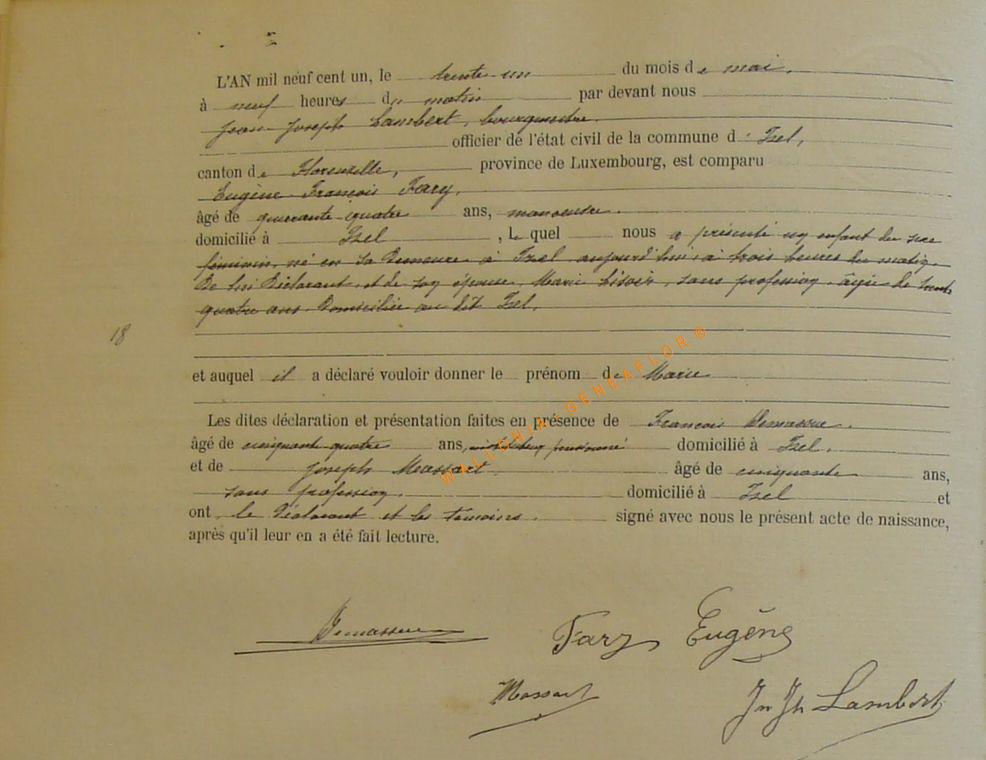 L'AN mil neuf cent un, le trente-un du mois de mai,
à neuf heures du matin par devant nous
Jean Joseph Lambert, bourgmestre
officier de l'état civil de la commune d' Izel,
canton de Florenville, province de Luxembourg, est comparu
Eugène François Farÿ,
âgé de quarante quatre ans, manoeuvre.
domicilié à Izel, Lequel nous a présenté un enfant du sexe
féminin, né en sa demeure à Izel aujourd'hui à trois heures du matin,
de lui déclarant, et de son épouse, Marie, sans profession, âgée de trente
quatre ans. domiciliée au dit Izel.
18
et auquel il a déclaré vouloir donner le prénom de Marie
Les dites déclaration et présentation faites en présence de François Demasseue.
âgé de cinquante quatre ans, domicilié à Izel.
et de Joseph Massart âgé de cinquante ans,
sans profession. domicilié à Izel et
ont le déclarant et les témoins. signé avec nous le présent acte de naissance,
après qu'il leur en a été fait lecture.
Farÿ Eugène
Massart
Jn Jh Lambert